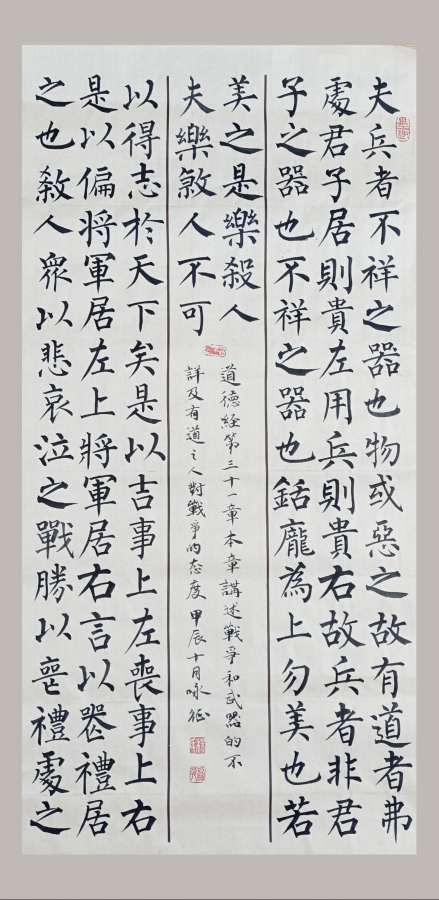 夫兵者不祥之器也物或惡之故有道者弗
處君子居則貴左用兵則貴右故兵者非君
子之器也不祥之器也銛龐為上勿美也若
美之是樂殺人
夫樂煞人不可
以得志於天下矣是以吉事上左喪事上右
是以偏將軍居左上將軍居右言以喪禮居
之也殺人眾以悲哀泣之戰勝以喪禮處之
道德經第三十一章本章講述戰爭和武器的不
詳及有道之人對戰爭的态度甲辰十月咏征